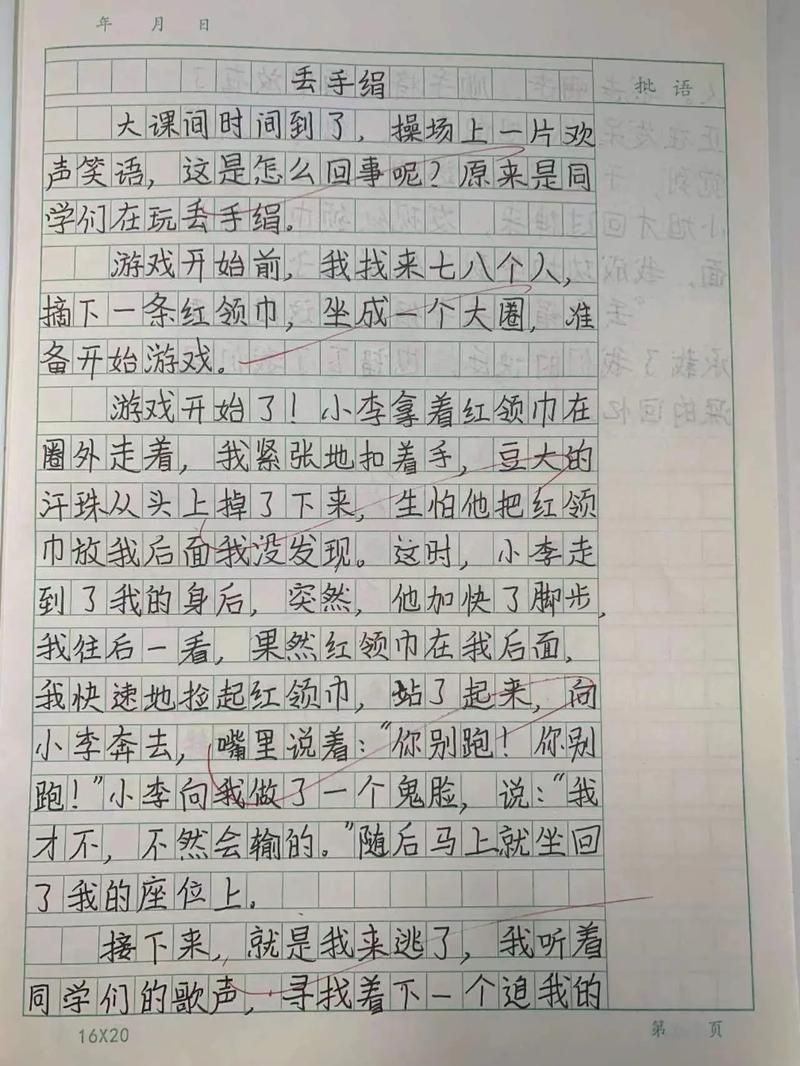 年 月 日
丢手绢
批语
大课间时间到了，操场上一片欢
声笑语，这是怎么回事呢？原来是同
学们在玩丢手绢。
游戏开始前，我找来七八个人，
摘下一条红领巾，坐成一个大圈，准
备开始游戏。
游戏开始了！小李拿着红领巾在
圈外走着，我紧张地扣着手，豆大的
汗珠从头上掉了下来，生怕他把红领
巾放我后面我没发现。这时，小李走
到了我的身后，突然，他加快了脚步，
我往后一看，果然红领巾在我后面，
我快速地捡起红领巾，站了起来，向
小李奔去，嘴里说着：“你别跑！你别
跑！”小李向我做了一个鬼脸，说：“我
才不，不然会输的。”随后马上就坐回
了我的座位上。
接下来，就是我来逃了，我听着
同学们的歌声，寻找着下一个追我的
16X20
第 页